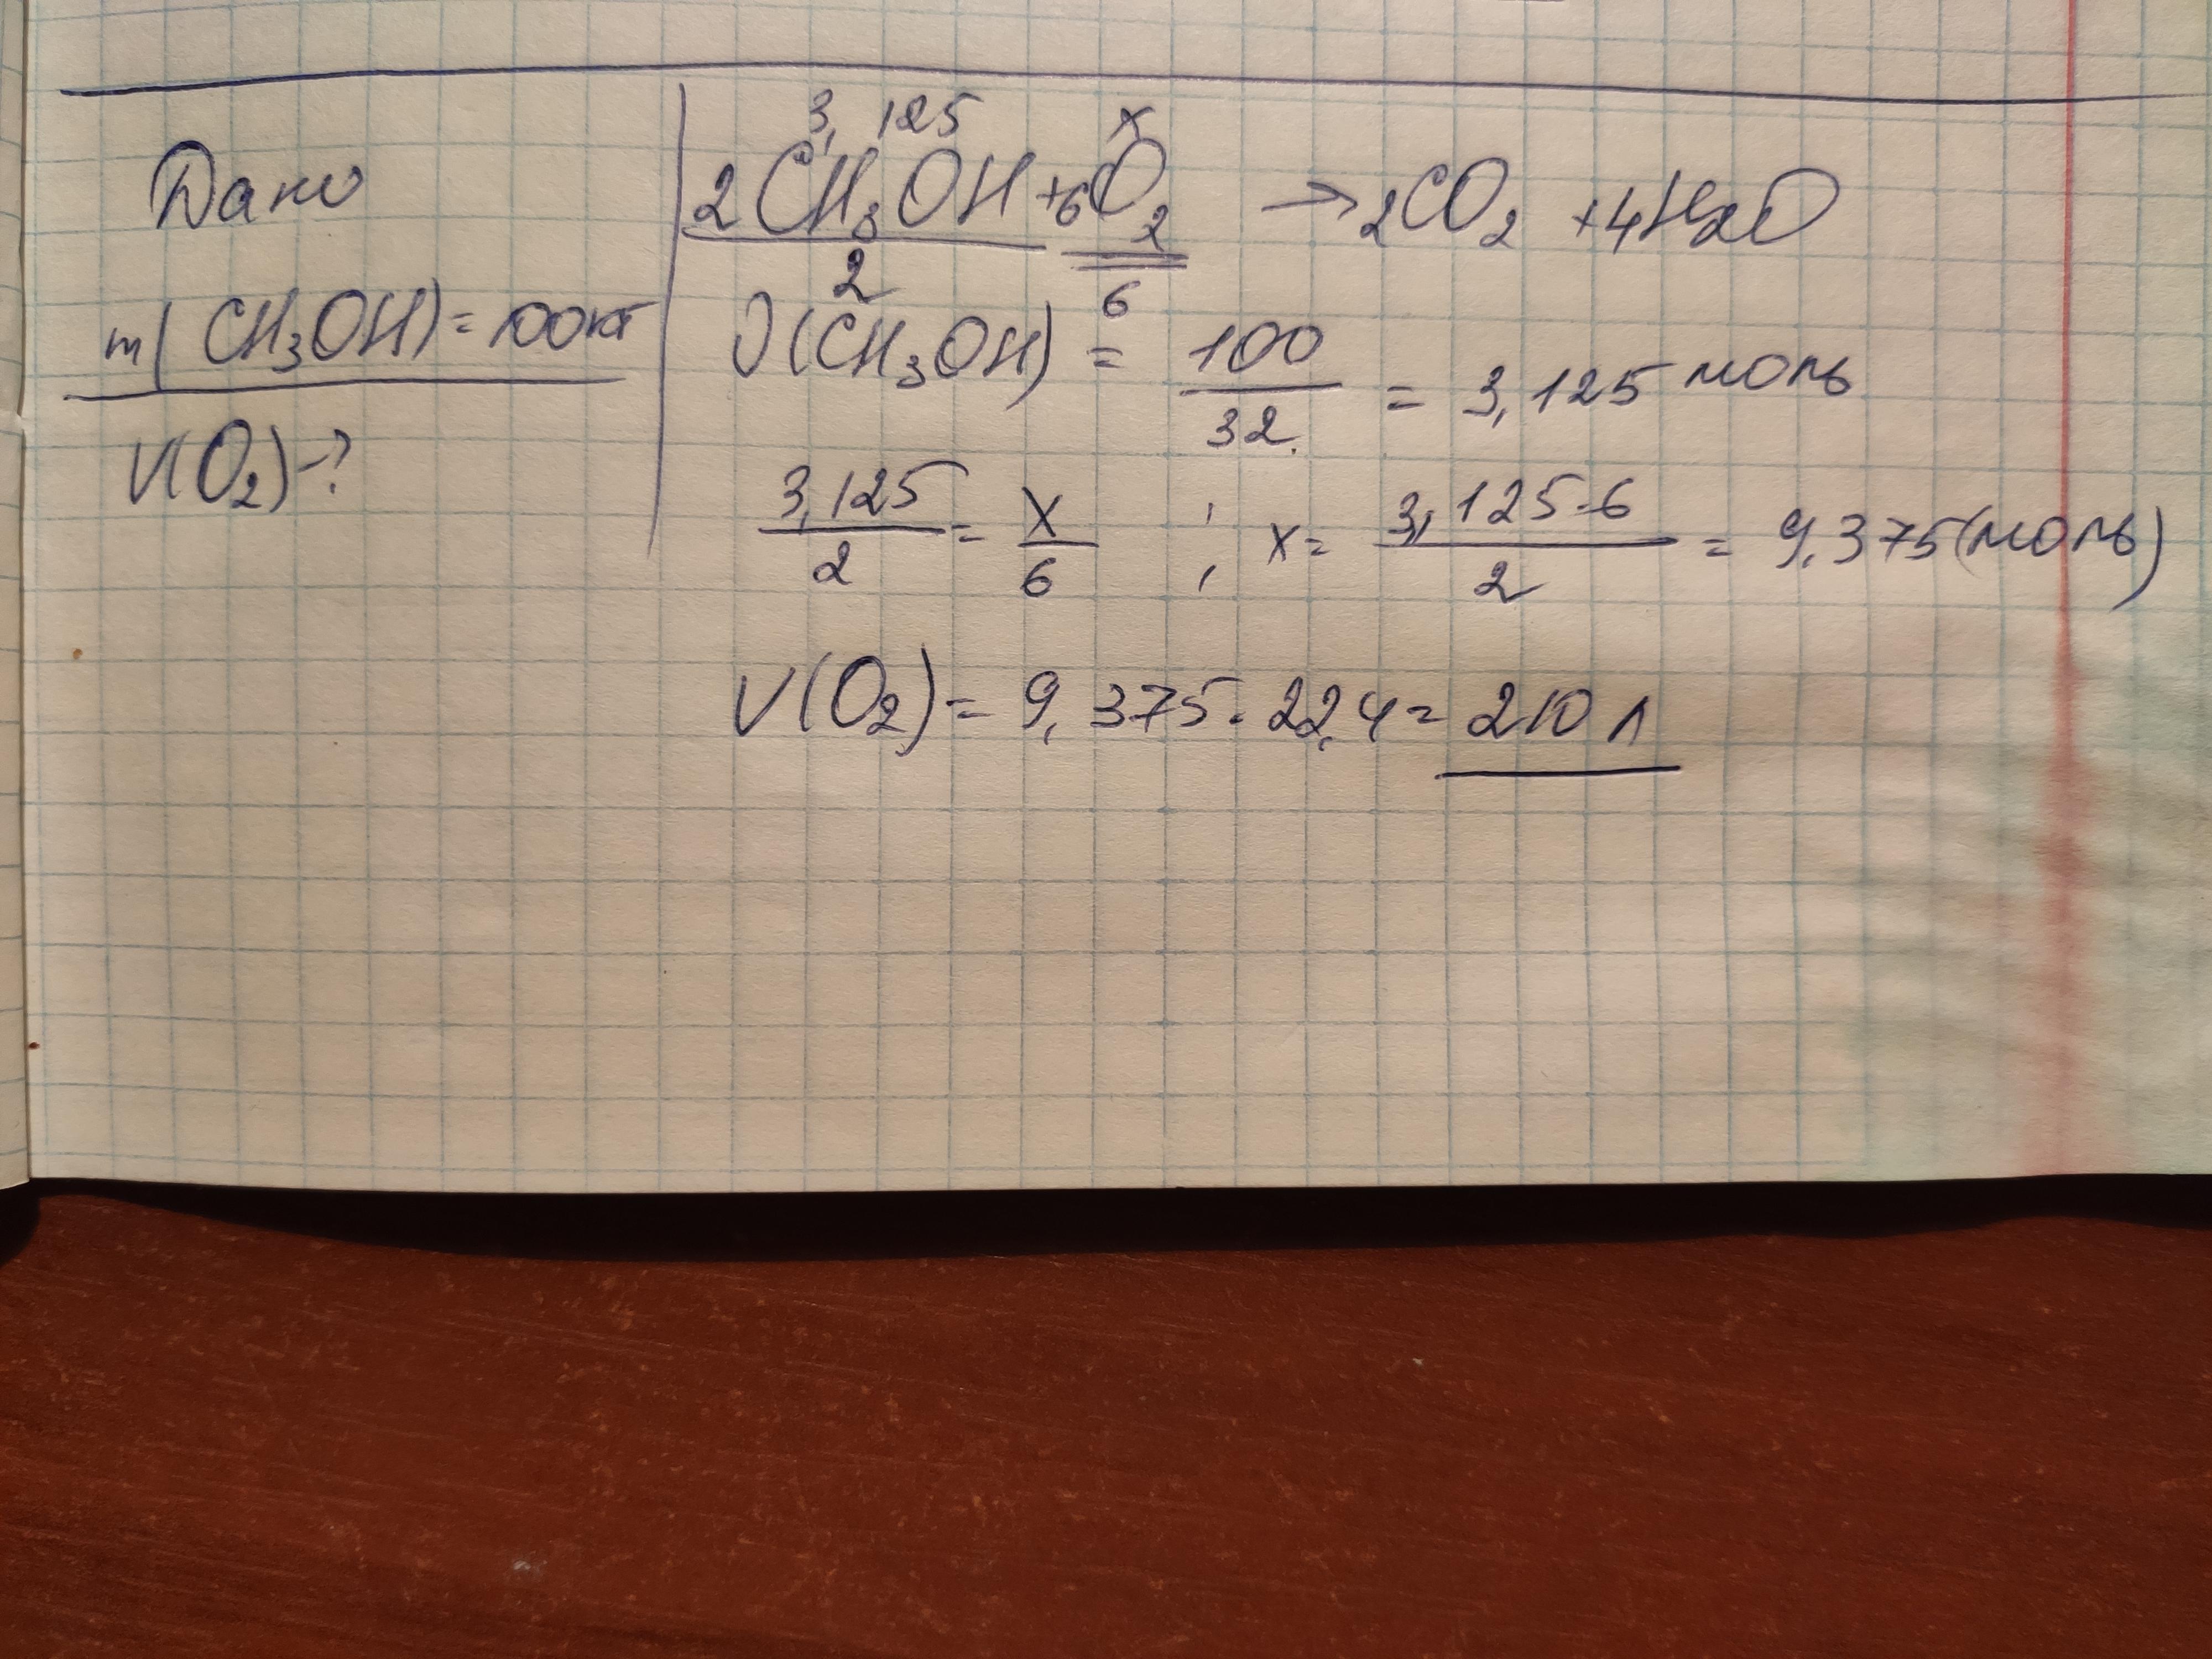 Дано
m(CH₃OH)=100кг
V(O₂)-?
3,125 x
2CH₃OH+6O₂ → 2CO₂ +4H₂O
2 6
ν(CH₃OH) = 100/32 = 3,125 моль
3,125/2 = x/6 ; x= 3,125·6/2 = 9,375(моль)
V(O₂)= 9,375·22,4= 210 л